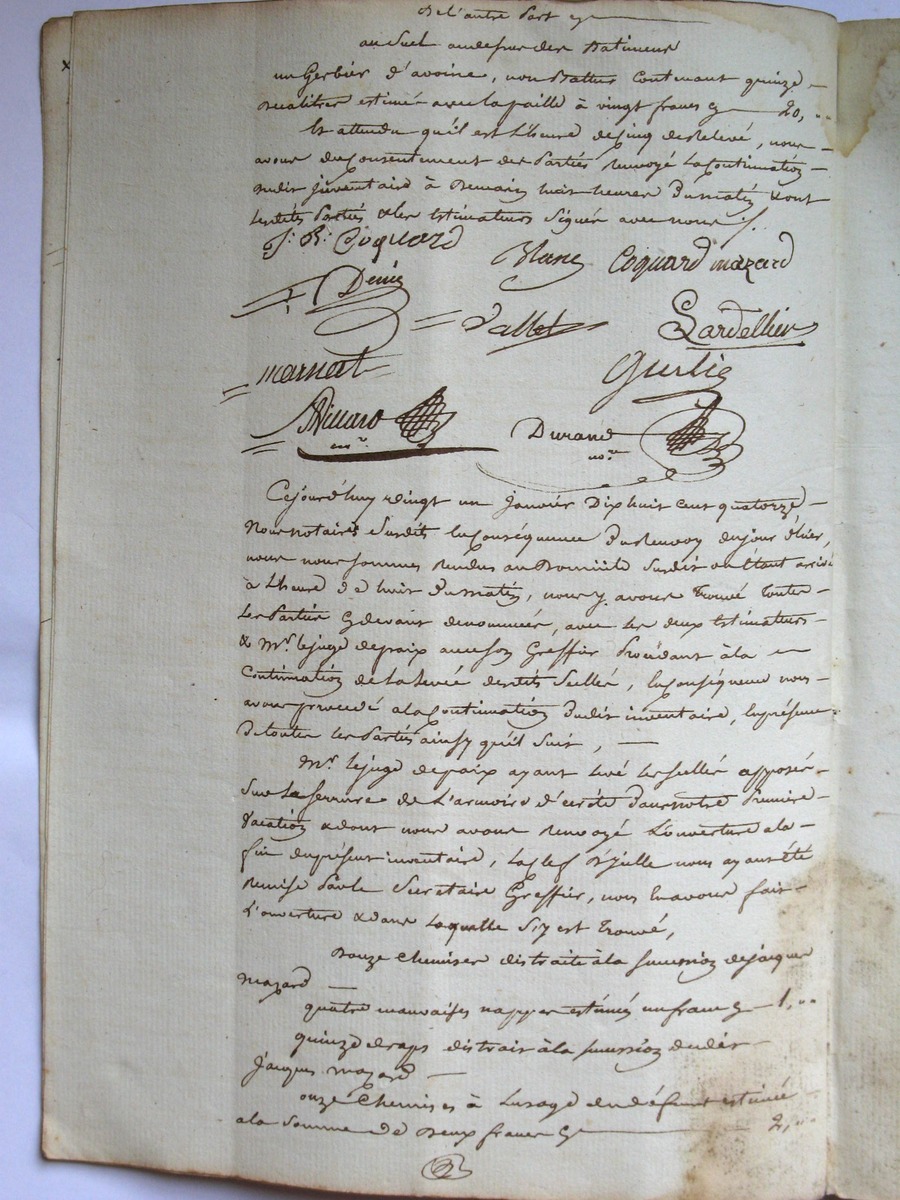 De l'autre Part cy
au suel audessus des Batimens
un Gerbier d'avoine, non Battus Contenant quinze
decalitres estimée avec la paille à vingt francs cy 20, ..
Et attendu qu'il est L'heure de cinq de Relevé, nous
avons du Consentement des Parties Renvoyé la Continuation
dudit inventaire à Demain huit heures Du matin & ont
lesdites Parties & les Estimateurs Signés avec nous ./.
J: B: Coquard
Blanc Coquard mazard
Denis
Vallet Lardellier
marnat
Gurlie
Villard
nre.
Durand
nore.
Cejourd'huy vingt un janvier Dix huit cent quatorze,
Nous notaires Susdits En Conséquence Du Renvoy du jour d'hier,
nous nous sommes Rendus au Domicile Susdit ou étant arrivé
à L'heure de huit Du matin, nous y avons Trouvé toutes
Les Parties cydevant denommées, avec les deux Estimateurs
& Mr. le juge de paix avec son Greffier Procédant à la
Continuation de la Levée desdits Scellés, En Conséquence nous
avons procedé a la Continuation Dudit inventaire, En présence
De toutes les Parties ainsy qu'il Suit,
Mr. le juge de paix ayant levé les scellés apposés
Sur La serrure de L'armoire d'écrite Dans notre Premiere
Vacation & dont nous avons Renvoyé L'ouverture a la
fin du présent inventaire, La clef D'ycelle nous ayant été
Remise Par le Secretaire Greffier, nous En avons fait
L'ouverture & dans Laqualle S'y est Trouvé,
Douze Chemises distraite à la succession de jacques
Mazard
quatre mauvaises nappes estimés un franc cy 1, ..
quinze draps distrait à la succession dudit
Jacques Mazard
onze Chemises à Lusage du défunt estimée
a la Somme de Deux francs cy 2, ..